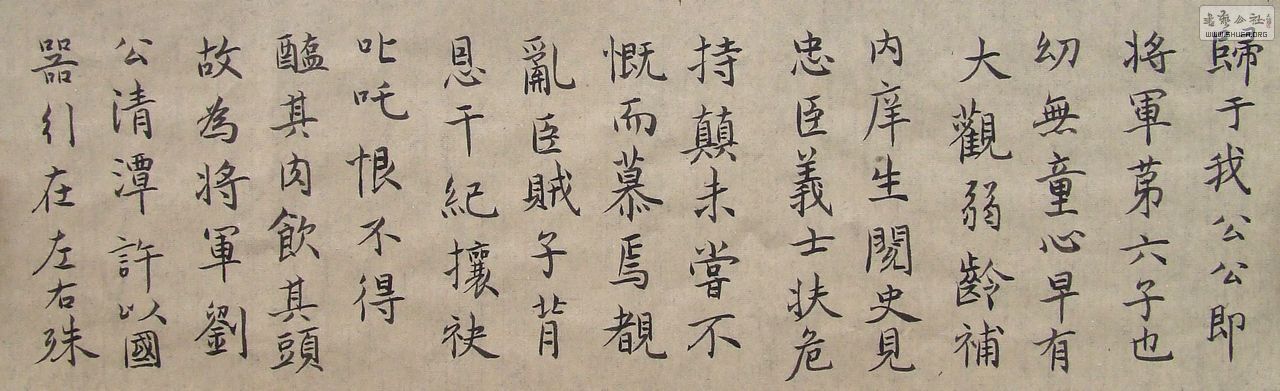 歸于我公公即
將軍苐六子也
幼無童心早有
大觀弱齡補
内庠生閲史見
忠臣義士扶危
持顛未嘗不
慨而慕焉覩
亂臣賊子背
恩干紀攘袂
叱咤恨不得
醢其肉飲其頭
故為將軍劉
公清潭許以國
器引在左右殊
书艺公社
WWW.SHUFA.ORG